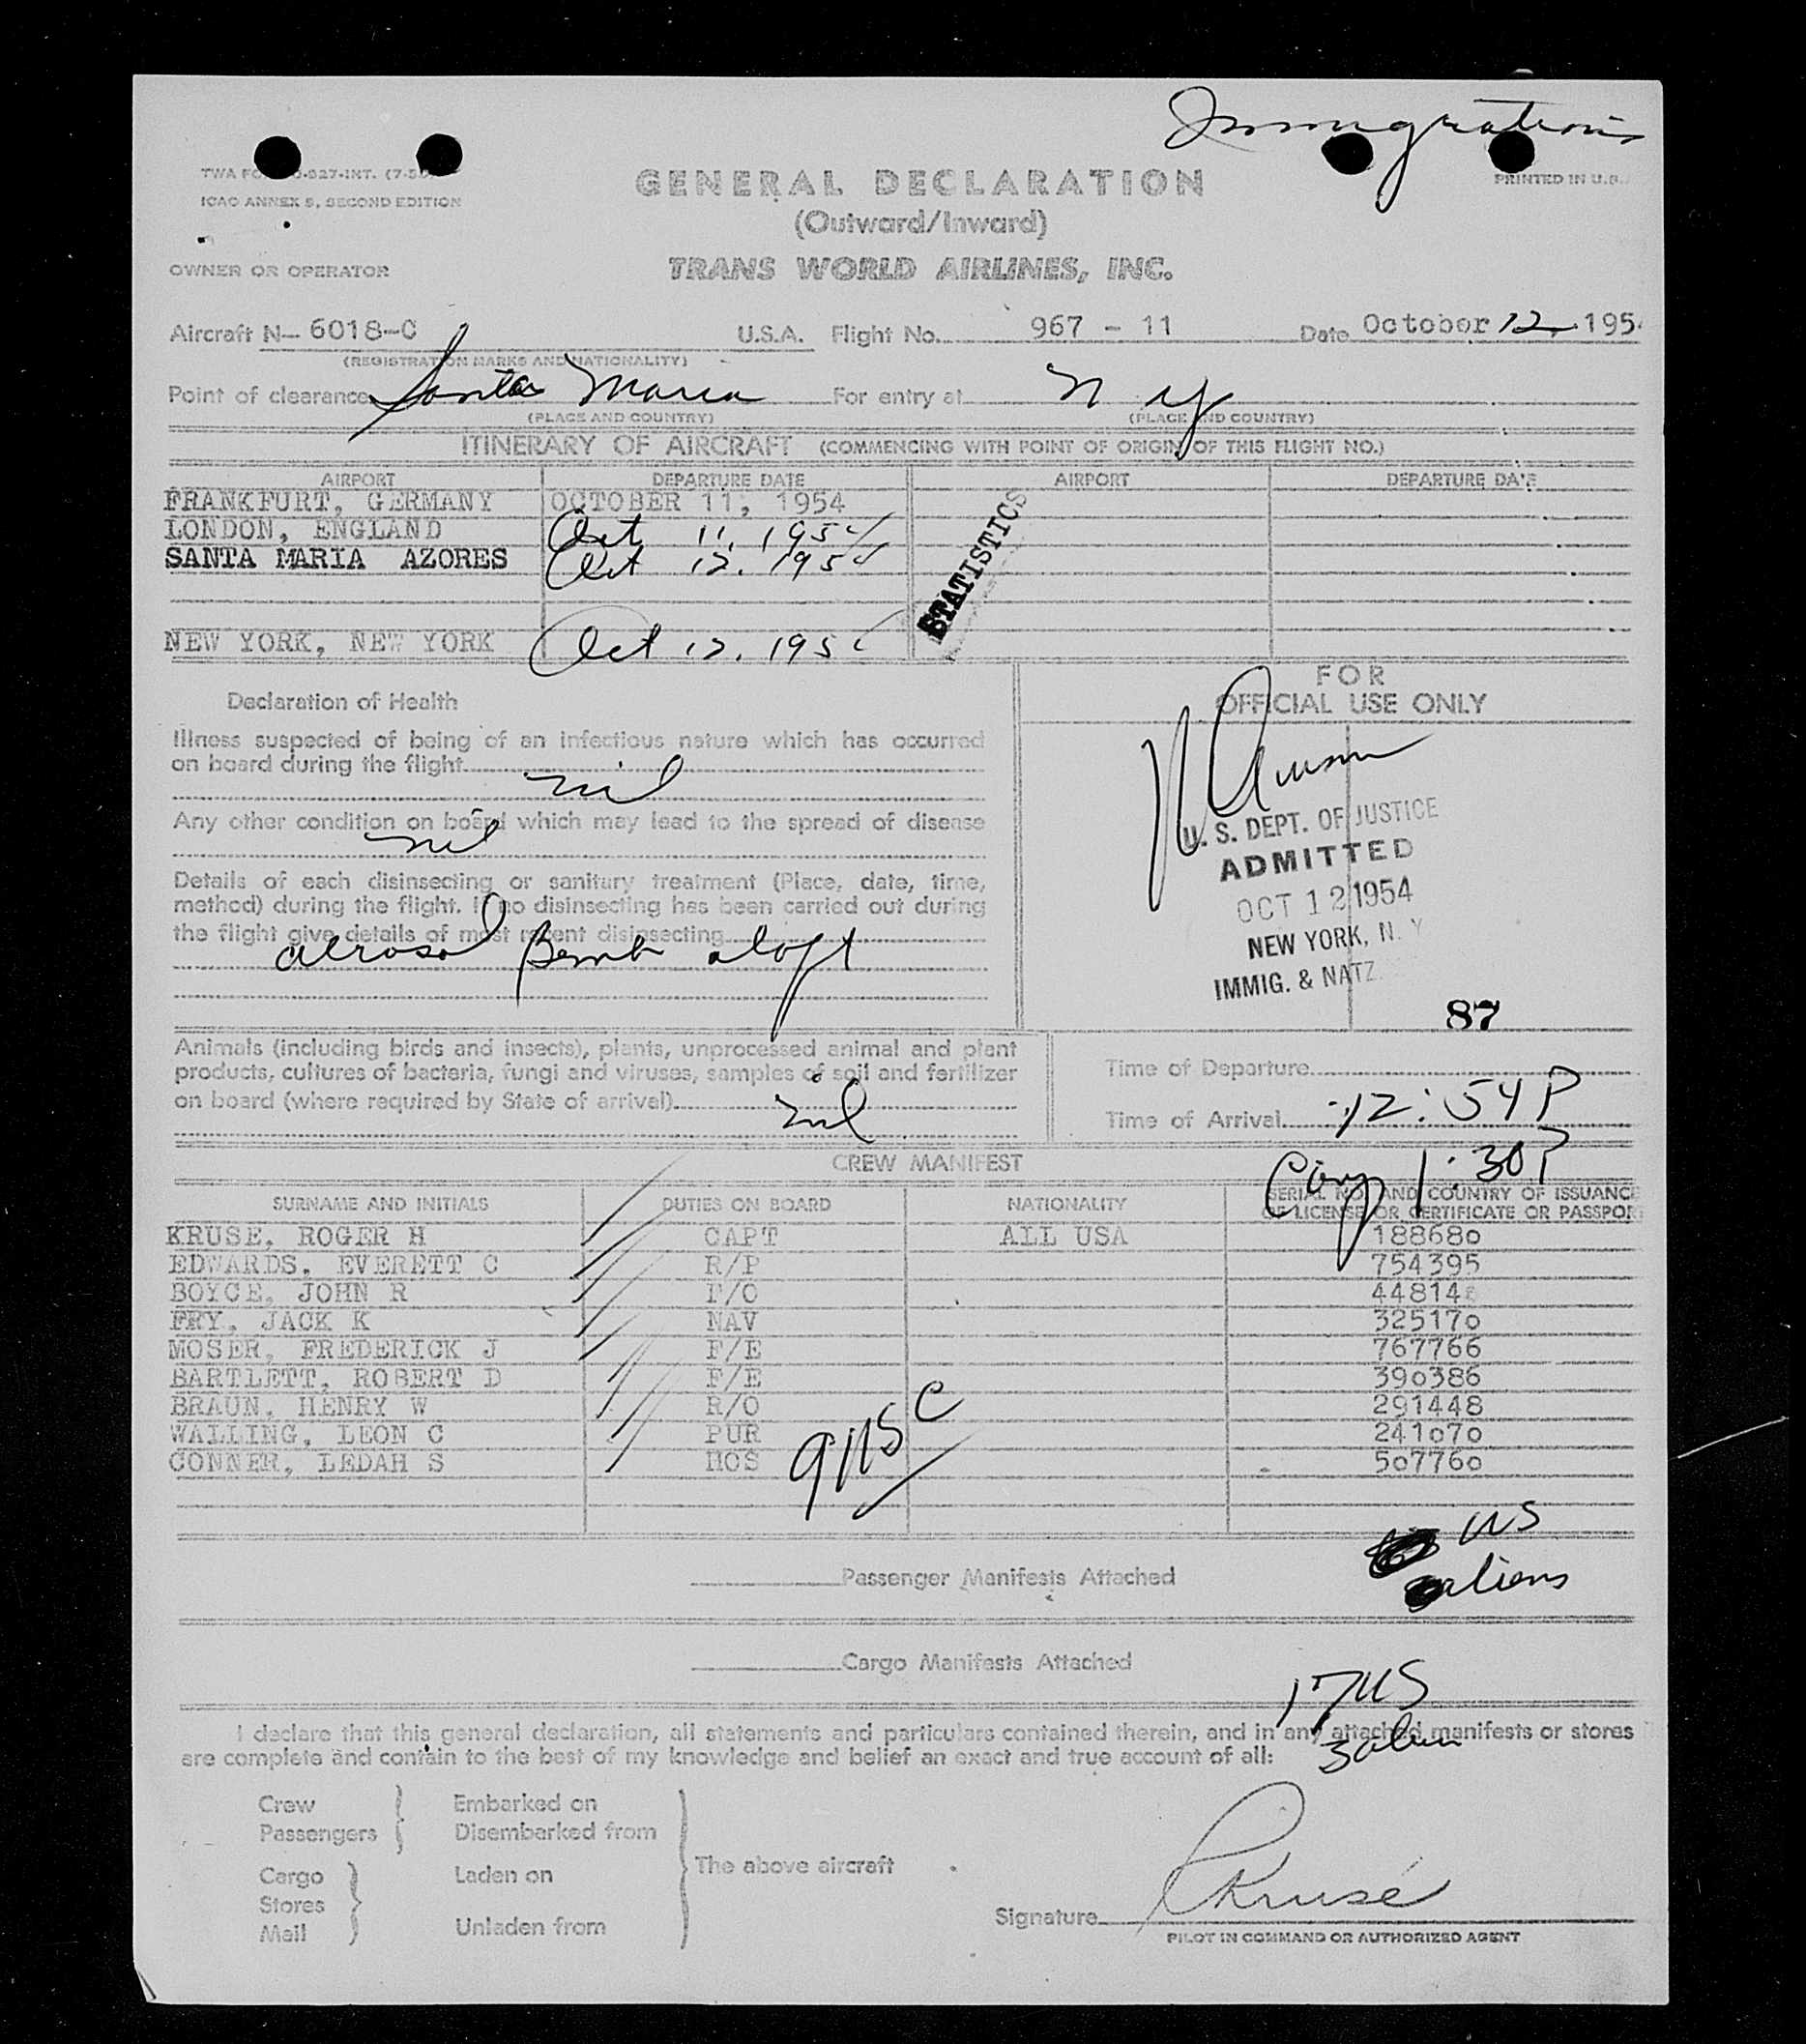 Immigration
TWA FO 0-927-INT. (7-5
ICAO ANNEX 9, SECOND EDITION
PRINTED IN U.S.
GENERAL DECLARATION
(Outward/Inward)
OWNER OR OPERATOR
TRANS WORLD AIRLINES, INC.
Aircraft N- 6018-C U.S.A. Flight No. 967 - 11 Date October 12, 195
(REGISTRATION MARKS AND NATIONALITY)
Point of clearance Santa Maria For entry at N Y
(PLACE AND COUNTRY) (PLACE AND COUNTRY)
ITINERARY OF AIRCRAFT (COMMENCING WITH POINT OF ORIGIN OF THIS FLIGHT NO.)
AIRPORT DEPARTURE DATE AIRPORT DEPARTURE DATE
FRANKFURT, GERMANY OCTOBER 11, 1954
LONDON, ENGLAND Oct 11, 1954
SANTA MARIA AZORES Oct 12. 1954
STATISTICS
NEW YORK, NEW YORK Oct 12. 195
FOR
OFFICIAL USE ONLY
Declaration of Health
Illness suspected of being of an infectious nature which has occurred
on board during the flight
nil
Any other condition on board which may lead to the spread of disease
nil
Details of each disinsecting or sanitary treatment (Place, date, time,
method) during the flight. If no disinsecting has been carried out during
the flight give details of most recent disinsecting
aerosol Bomb aloft
U. S. DEPT. OF JUSTICE
ADMITTED
OCT 12 1954
NEW YORK, N. Y
IMMIG. & NATZ.
87
Animals (including birds and insects), plants, unprocessed animal and plant
products, cultures of bacteria, fungi and viruses, samples of soil and fertilizer
on board (where required by State of arrival)
nil
Time of Departure
Time of Arrival 12:54P
1:30P
CREW MANIFEST
SURNAME AND INITIALS DUTIES ON BOARD NATIONALITY SERIAL NO. AND COUNTRY OF ISSUANCE
OF LICENSE OR CERTIFICATE OR PASSPORT
KRUSE, ROGER H CAPT ALL USA 188680
EDWARDS, EVERETT C R/P 754395
BOYCE, JOHN R F/O 44814
FRY, JACK K NAV 325170
MOSER, FREDERICK J F/E 767766
BARTLETT, ROBERT D F/E 390386
BRAUN, HENRY W R/O 291448
WALLING, LEON C PUR 241070
CONNER, LEDAH S HOS 507760
9 US C
US
aliens
Passenger Manifests Attached
Cargo Manifests Attached
17US
3 alien
I declare that this general declaration, all statements and particulars contained therein, and in any attached manifests or stores
are complete and contain to the best of my knowledge and belief an exact and true account of all:
Crew Embarked on
Passengers Disembarked from
The above aircraft
Cargo Laden on
Stores
Mail Unladen from
Signature RKruse
PILOT IN COMMAND OR AUTHORIZED AGENT